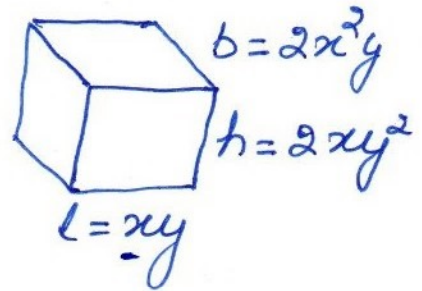 b = 2x²y
h = 2xy²
l = xy